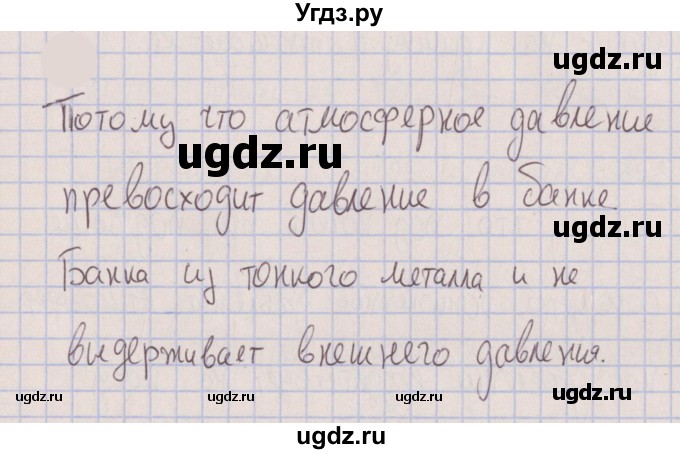 Угдз.ру
ugdz.ru
Потому что атмосферное давление
ugdz.ru
превосходит давление в банке.
Банка из тонкого металла и не
выдерживает внешнего давления.
ugdz.ru ugdz.ru ugdz.ru ugdz.ru
ugdz.ru